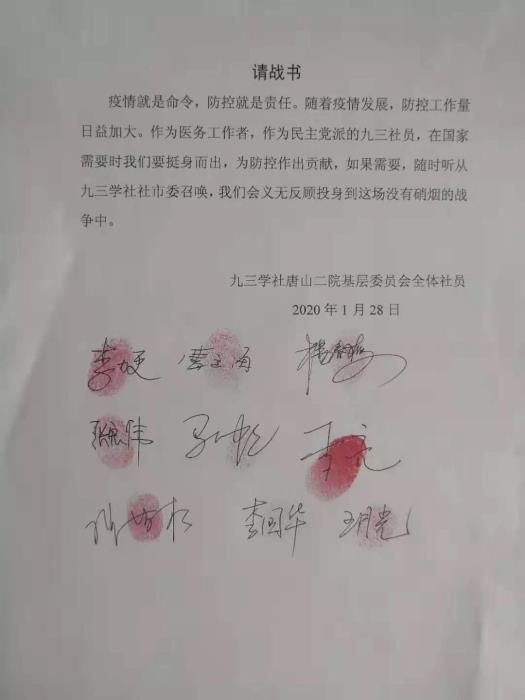 请战书
疫情就是命令，防控就是责任。随着疫情发展，防控工作量
日益加大。作为医务工作者，作为民主党派的九三社员，在国家
需要时我们要挺身而出，为防控作出贡献，如果需要，随时听从
九三学社社市委召唤，我们会义无反顾投身到这场没有硝烟的战
争中。
九三学社唐山二院基层委员会全体社员
2020 年 1 月 28 日
李国华 王月光